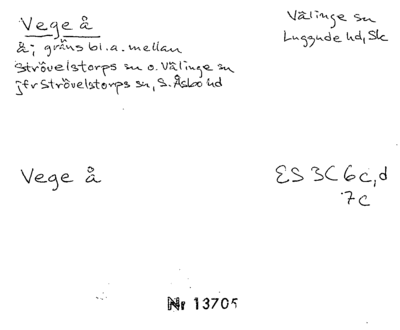 Vege å
Välinge sn
Luggude hd, Sk
å; gräns bl.a. mellan
Strövelstorps sn o. Välinge sn
jfr Strövelstorps sn, S. Åsbo hd
Vege å
ES 3C 6c,d
7c
Nr 13705